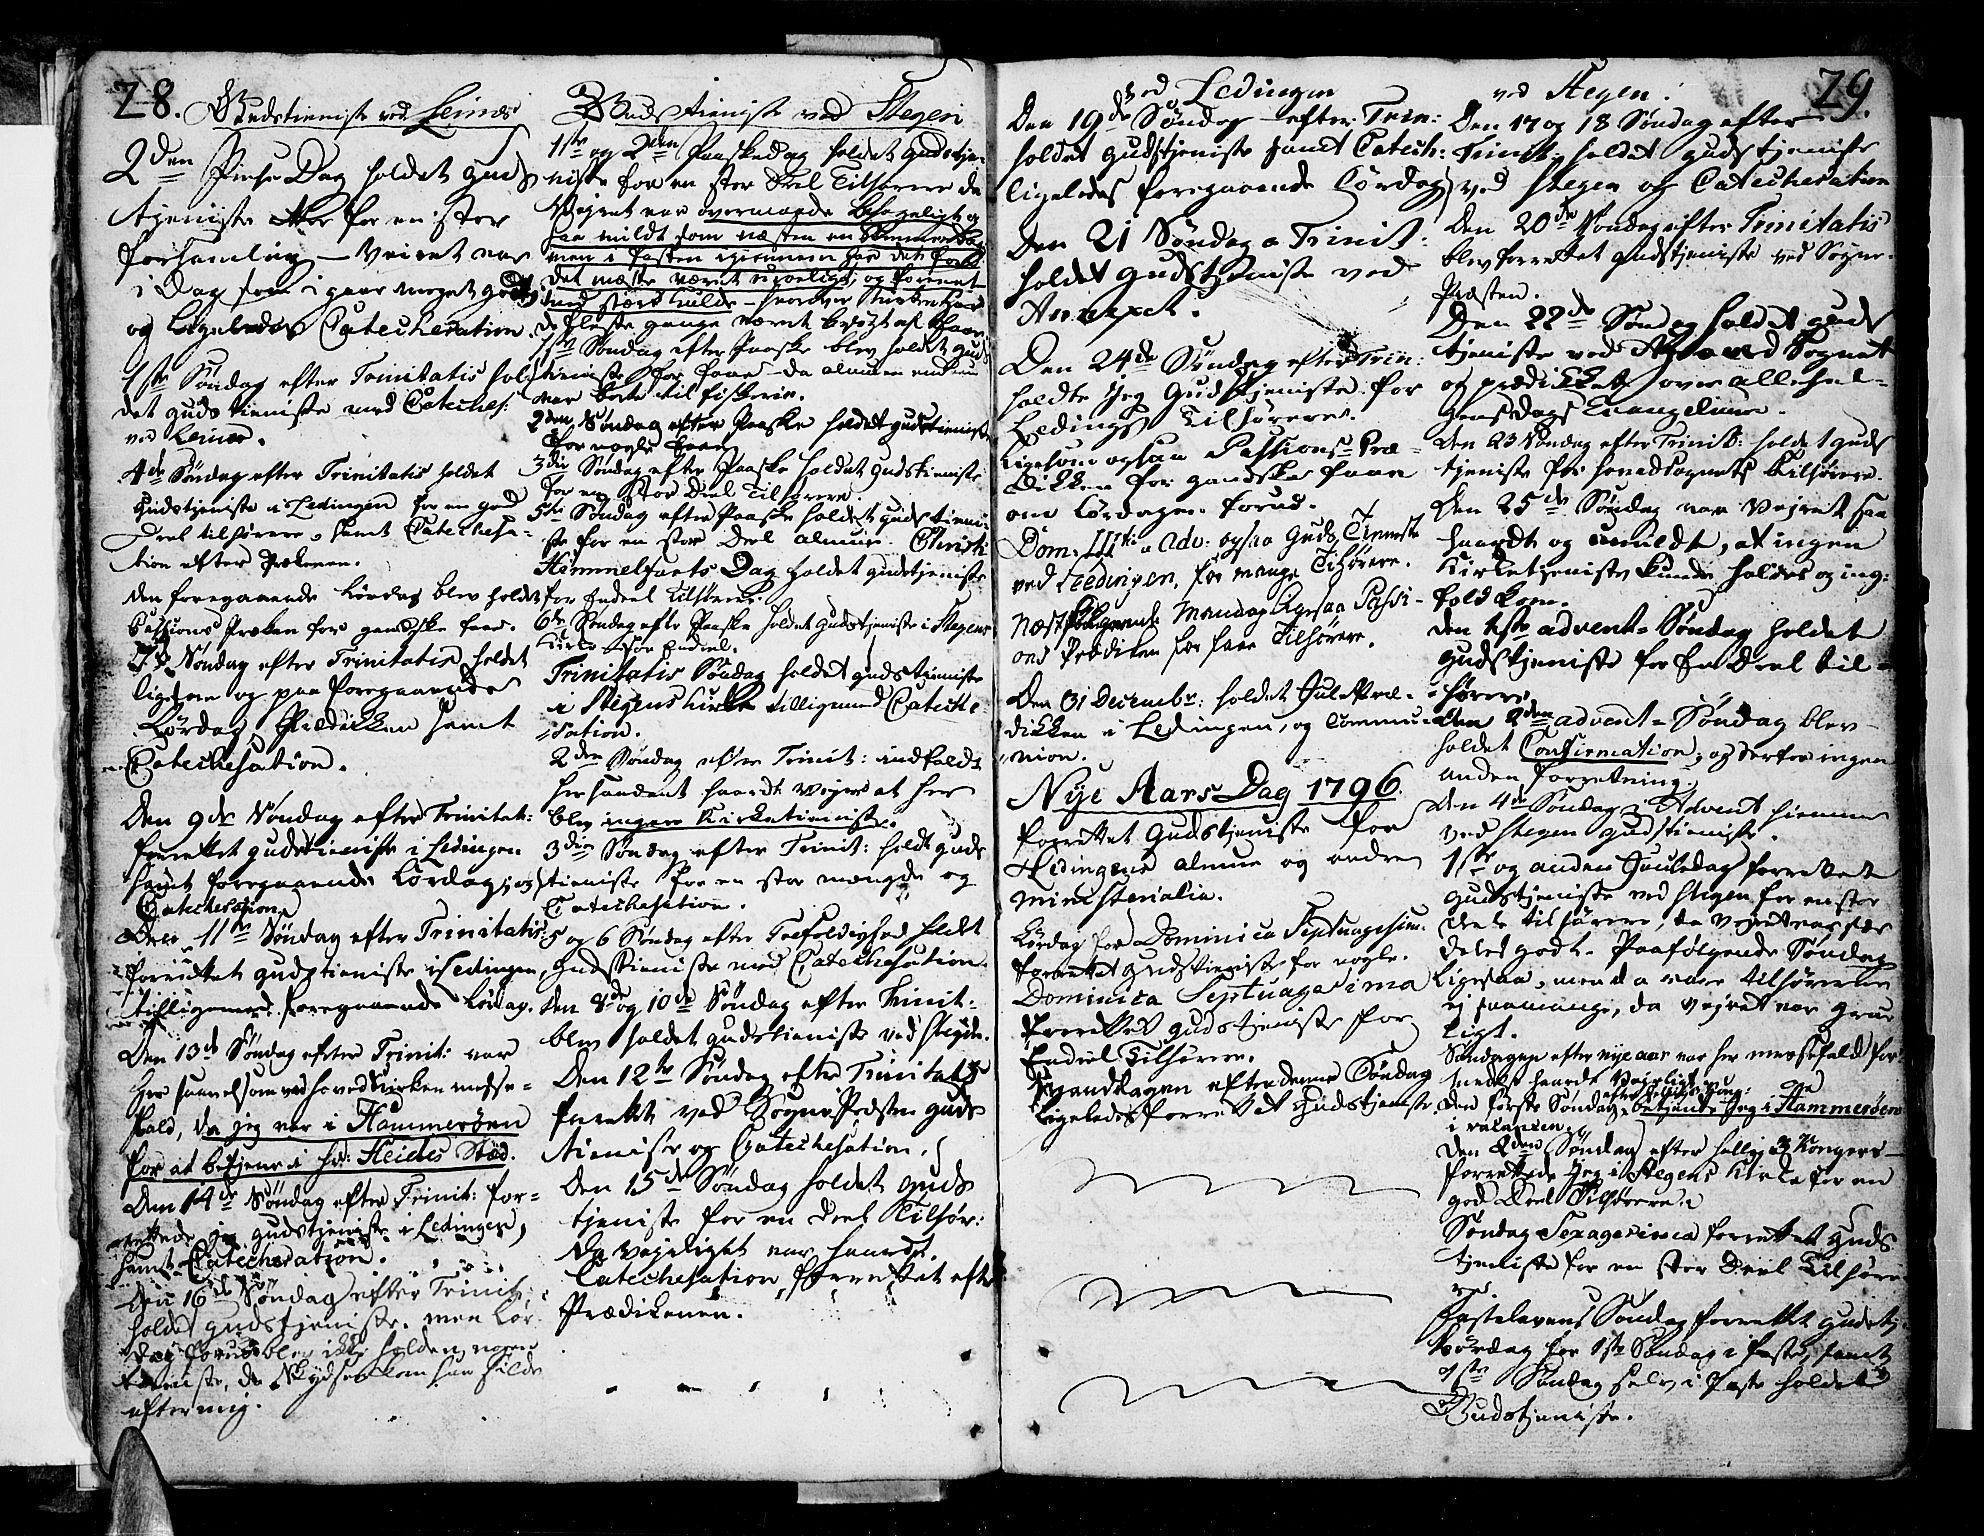 28.
Gudstieniste ved Leines
2den Pinse Dag holdet Guds
tjeniste for en stor
forsamling – Veiret var
i Dag som i gaar meget godt
og ligeledes Catechesation.
1ste Søndag efter Trinitatis hol
det guds tieniste med Cateches:
ved Leines.
4de Søndag efter Trinitatis holdet
Gudstjeniste i Ledingen for en god
Deel tilhørere, samt Catechesa-
tion efter Prækenen.
den foregaaende Lørdag blev holdet
Passions Præken for gandske faae.
Søndag efter Trinitatis holdet
ligesaa og paa foregaaende
Lørdag Prædiken samt
Catechesation.
Den 9de Søndag efter Trinitat:
forrettet gudstieniste i Ledingen
samt foregaaende Lørdag, og
Catechesation
Den 11te Søndag efter Trinitatis
forrettet gudstieniste i Ledingen
tilligemed foregaaende Lørdag.
Den 13de Søndag efter Trinit: var
her saavelsom ved hoved Kirken messe-
fald, da jeg var i Hammerøen
for at betjene i Hr: Heides Stæd.
Den 14de Søndag efter Trinit: for-
rettede jeg gudstjeniste i Ledingen,
samt Catechesation.
Den 16de Søndag efter Trinit:
holdet gudstjeniste, men Lør-
dag forud blev ikke holden nogen
tieniste, da Skydsen kom saa silde
efter mig.
Gudstieniste ved Stegen
1ste og 2den Paaskedag holdet gudstje-
niste for en stor Deel Tilhørere da
Vejret var overmaade behageligt og
saa mildt som næsten en Sommerdag
men i fasten igiennem har det for
det meste været uroeligt, og forenet
med stærk kulde – hvorover Kirken har
de fleste gange været besøgt af faae
1ste Søndag efter Paaske blev holdet guds
tieniste for faae – da almuen endnu
var borte til fiskerie.
2den Søndag efter Paaske holdet gudstieniste
for nogle faae
3die Søndag efter Paaske holdet gudstieniste
for en stor Deel Tilhørere.
5te Søndag efter Paaske holdet guds tieni-
ste for en stor Deel almue. Christi
Himmelfarts Dag holdet gudstjeniste
for Endeel Tilhørere.
6te Søndag efter Paaske holdet gudstjeniste i Stegens
Kirke for Endeel.
Trinitatis Søndag holdet gudstjeniste
i Stegens Kirke tilligemed Cateche-
sation.
2den Søndag efter Trinit: indfaldt
her saadant haardt Vejr at her
blev ingen Kirketieniste.
3die Søndag efter Trinit: holdt guds
tieniste for en stor mængde og
Catechesation.
5 og 6 Søndag efter Trefoldighed holdt
gudstieniste med Catechesation.
Den 8de og 10de Søndag efter Trinit:
blev holdet gudstieniste ved Stegen.
Den 12te Søndag efter Trinitatis
forrettet ved Sogne Præsten guds
tieniste og Catechesation.
Den 15de Søndag holdet guds
tjeniste for en Deel Tilhør:
Da Vejrliget var haardt.
Catechesation forrettet efter
Prædikenen.
29.
ved Ledingen
Den 19de Søndag efter Trin:
holdet gudstjeniste samt Catech:
ligeledes foregaaende Lørdag
Den 21 Søndag a Trinit:
holdet gudstjeniste ved
Annexet.
Den 24de Søndag efter Trin:
holdte Jeg Gudstjeniste for
Ledings Tilhørere.
Ligesom ogsaa Passions Præ-
dikken for gandske faae
om Lørdagen forud.
Dom: IIItia Adv: ogsaa Guds Tieneste
ved Ledingen, for mange Tilhørere.
Næstfølgende Mandag ligesaa Passi-
ons Prædiken for faae Tilhørere.
Den 31 Decembr: holdet Jule Præ-
dikken i Ledingen, og Commu-
nion.
Nye Aars Dag 1796.
forrettet Gudstjeniste for
Ledingens almue og andre
ministerialia.
Lørdag før Dominica Septuagesim:
forrettet gudstieniste for nogle.
Dominica Septuagesima
forrettet gudstjeniste for
Endeel Tilhørere.
Mandagen efter denne Søndag
ligeledes forrettet Gudstjeniste
ved Stegen.
Den 17 og 18 Søndag efter
Trinit: holdet gudstjeniste
ved Stegen og Catechesation
Den 20de Søndag efter Trinitatis
blev forrettet gudstjeniste ved Sogne-
Præsten.
Den 22de Søndag holdet guds
tjeniste ved Hoved Sognet
og prædikket over allehel-
gensdags Evangelium.
Den 23 Søndag efter Trinit: holdet guds
tjeniste for hovedsognets Tilhørere.
Den 25de Søndag var Vejret saa
haardt og umildt, at ingen
Kirketjeniste kunde holdes og ing:
folk kom.
Den 1ste advent-Søndag holdet
gudstjeniste for En Deel til-
hørere
Den 2den advent-Søndag blev
holdet Confirmation, og derfor ingen
anden forretning.
Den 4de Søndag i Advent hiemme
ved Stegen gudstieniste.
1ste og anden Juuledag forrettet
gudstjeniste ved Stegen for en stor
Deel tilhørere, da Vejret var sær-
deles godt. Paafølgende Søndag
ligesaa, men da vare tilhørerne
ej saa mange, da Vejret var grue
ligt.
Søndagen efter nye aar var her messefald for-
medelst haardt Vejrligt.
Den første Søndag efter hellig 3 Kong: betjente jeg i Hammerøen
i valancen.
Den 2den Søndag efter hellig 3 Kongers
forrettede Jeg i Stegens Kirke for en
god Deel Tilhørere.
Søndag Sexagesima forrettet guds
tjeniste for en stor Deel Tilhøre
re.
Fastelavens Søndag forrettet gudstj:
Lørdag før 1ste Søndag i faste, samt
1ste Søndag selv i Faste holdet
Gudstjeniste.